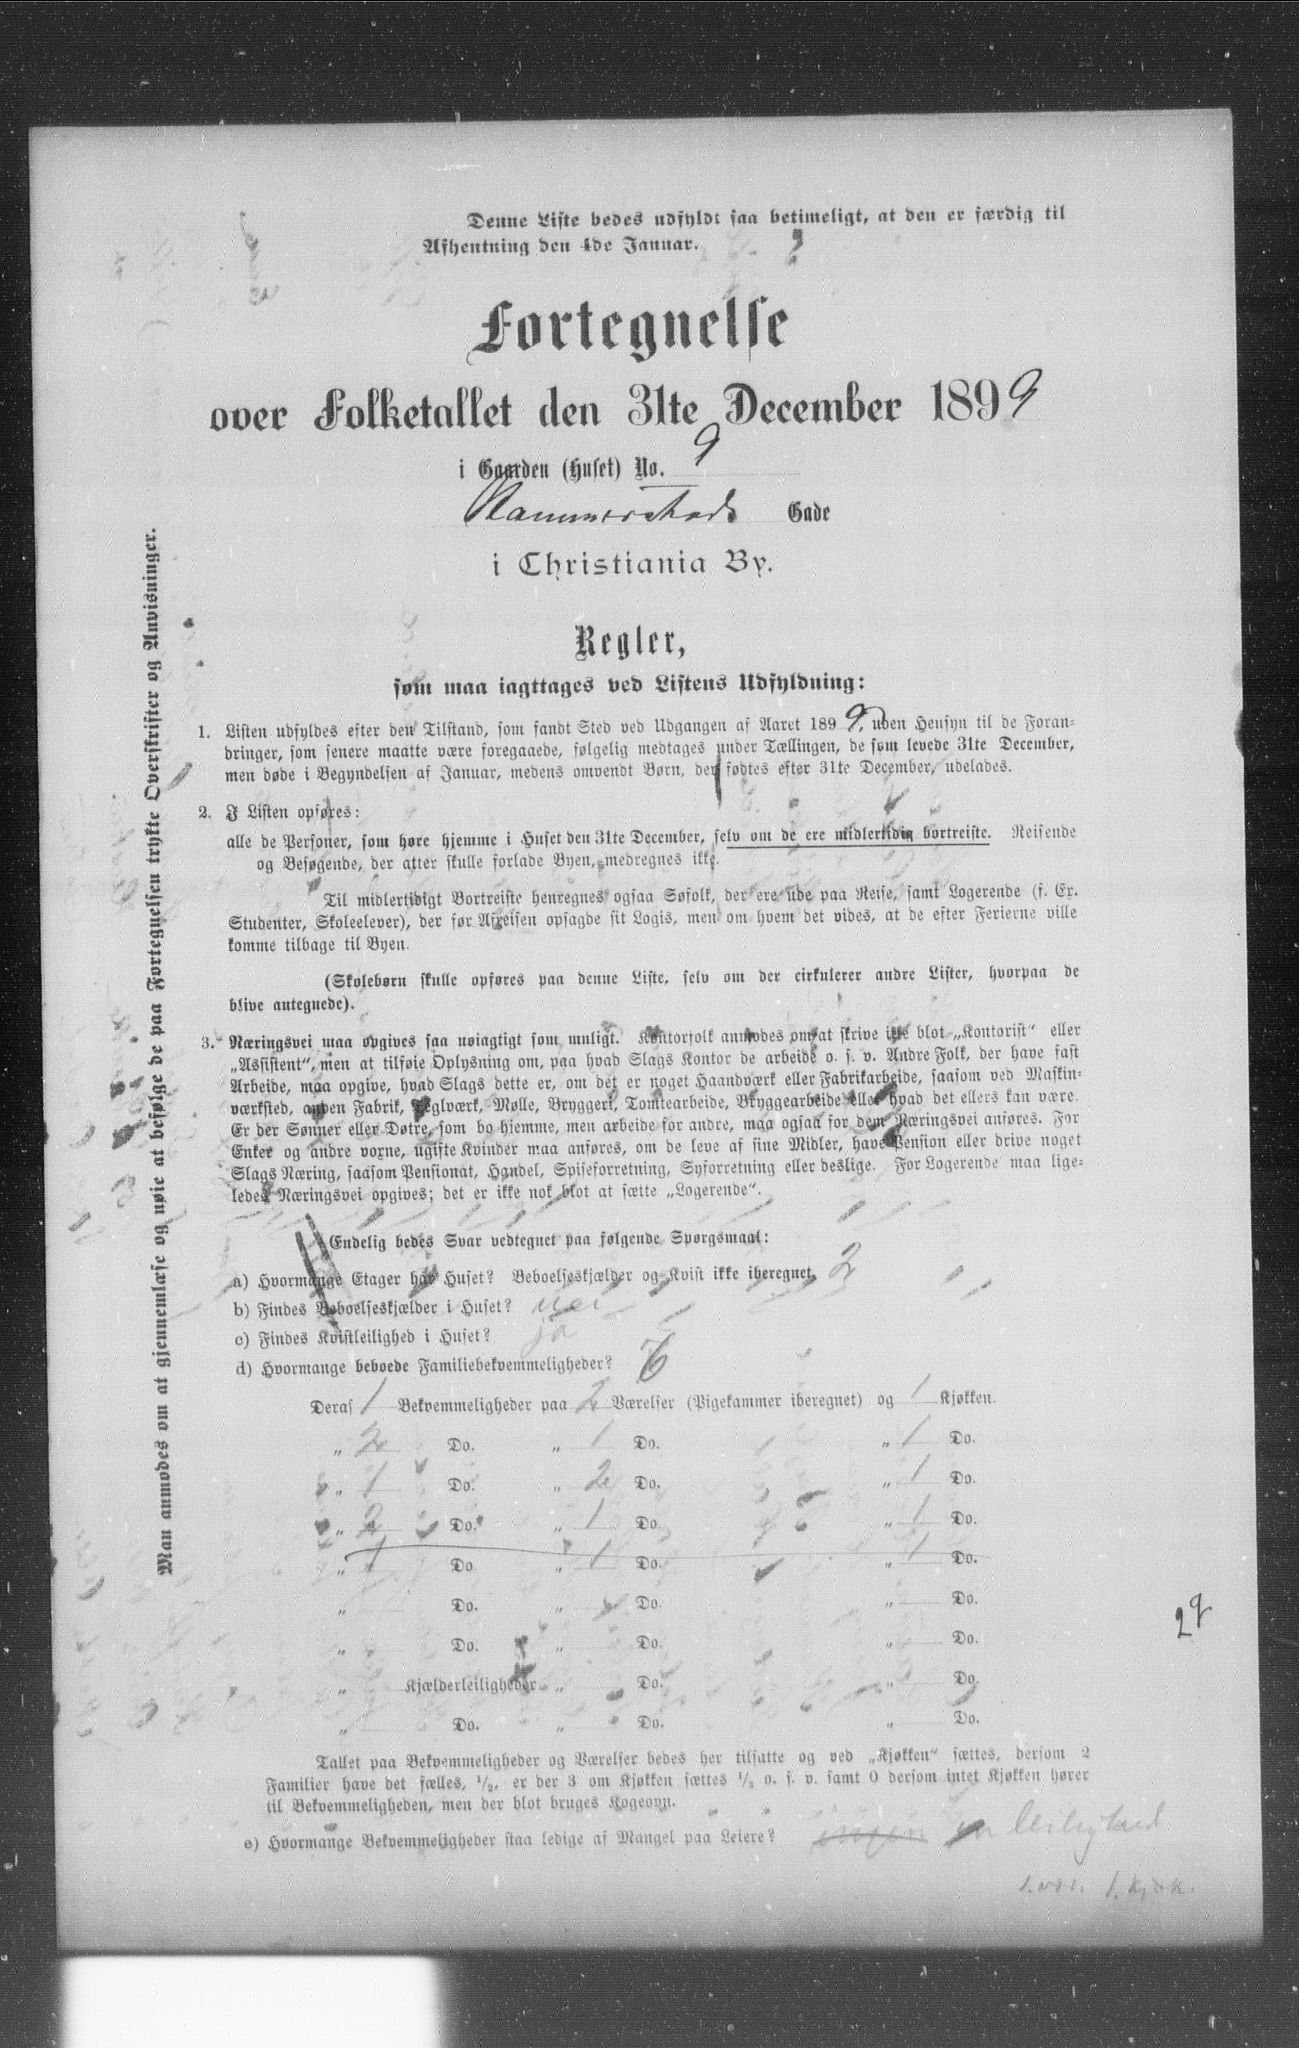 Denne Liste bedes udfyldt saa betimeligt, at den er færdig til
Afhentning den 4de Januar.
Fortegnelse
over Folketallet den 31te December 1899
i Gaarden (Huset) No. 9
Gade
i Christiania By.
Regler,
som maa iagttages ved Listens Udfyldning:
1. Listen udfyldes efter den Tilstand, som fandt Sted ved Udgangen af Aaret 1899, uden Hensyn til de Foran-
dringer, som senere maatte være foregaaede, følgelig medtages under Tællingen, de som levede 31te December,
men døde i Begyndelsen af Januar, medens omvendt Børn, der fødtes efter 31te December, udelades.
2. I Listen opføres:
alle de Personer, som høre hjemme i Huset den 31te December, selv om de ere midlertidig bortreiste. Reisende
og Besøgende, der atter skulle forlade Byen, medregnes ikke.
Til midlertidigt Bortreiste henregnes ogsaa Søfolk, der ere ude paa Reise, samt Logerende (f. Ex.
Studenter, Skoleelever), der før Afreisen opsagde sit Logis, men om hvem det vides, at de efter Ferierne ville
komme tilbage til Byen.
(Skolebørn skulle opføres paa denne Liste, selv om der cirkulerer andre Lister, hvorpaa de
blive antegnede).
3. Næringsvei maa opgives saa nøiagtigt som muligt. Kontorfolk anmodes om at skrive ikke blot „Kontorist“ eller
„Assistent“, men at tilføie Oplysning om, paa hvad Slags Kontor de arbeide o. s. v. Andre Folk, der have fast
Arbeide, maa opgive, hvad Slags dette er, om det er noget Haandværk eller Fabrikarbeide, saasom ved Maskin-
værksted, anden Fabrik, Teglværk, Mølle, Bryggeri, Tomtearbeide, Bryggearbeide eller hvad det ellers kan være.
Er der Sønner eller Døtre, som bo hjemme, men arbeide for andre, maa ogsaa for dem Næringsvei anføres. For
Enker og andre vorne, ugifte Kvinder maa anføres, om de leve af sine Midler, have Pension eller drive noget
Slags Næring, saasom Pensionat, Handel, Spiseforretning, Syforretning eller deslige. For Logerende maa lige-
ledes Næringsvei opgives; det er ikke nok blot at sætte „Logerende“.
Endelig bedes Svar vedtegnet paa følgende Spørgsmaal:
a) Hvormange Etager har Huset? Beboelseskjælder og Kvist ikke iberegnet. 2
b) Findes Beboelseskjælder i Huset? nei
c) Findes Kvistleilighed i Huset? ja
d) Hvormange beboede Familiebekvemmeligheder? 6
Deraf 1 Bekvemmeligheder paa 2 Værelser (Pigekammer iberegnet) og 1 Kjøkken.
„ 2 Do. „ 1 Do. „ 1 Do.
„ 1 Do. „ 2 Do. „ 1 Do.
„ 2 Do. „ 1 Do. „ 1 Do.
„ 1 Do. „ 1 Do. „ 1 Do.
„ Do. „ Do. „ Do.
„ Do. „ Do. „ Do.
„ Kjælderleiligheder „ Do. „ Do.
„ Do. „ Do. „ Do.
Tallet paa Bekvemmeligheder og Værelser bedes her tilsatte og ved „Kjøkken“ sættes, dersom 2
Familier have det fælles, 1/2, er der 3 om Kjøkken sættes 1/3 o. s. v. samt 0 dersom intet Kjøkken hører
til Bekvemmeligheden, men der blot bruges Kogeovn.
e) Hvormange Bekvemmeligheder staa ledige af Mangel paa Leiere? ingen en leilighed
1. vær. 1. kjøk.
Man anmodes om at gjennemlæse og nøie at befølge de paa Fortegnelsen trykte Overskrifter og Anvisninger.